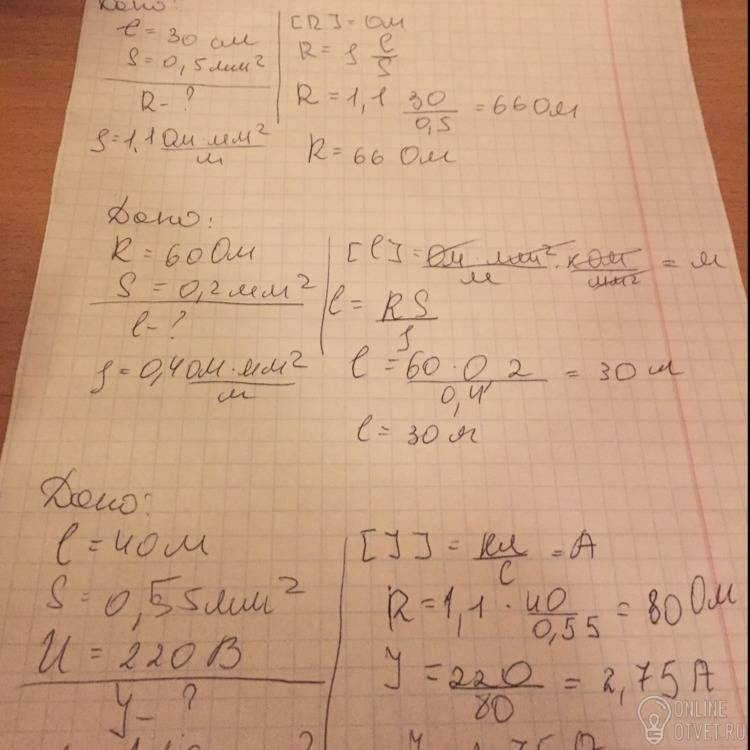 Дано:
l = 30 см
S = 0,5 мм²
R - ?
ρ = 1,1 Ом·мм²/м
[R] = Ом
R = ρ l/S
R = 1,1 30/0,5 = 66 Ом
R = 66 Ом
Дано:
R = 60 Ом
S = 0,2 мм²
l - ?
ρ = 0,4 Ом·мм²/м
= м
l = RS/ρ
l = 60·0 2/0,4 = 30 м
l = 30 м
Дано:
l = 40 м
S = 0,55 мм²
U = 220 В
J - ?
[J] = Кл/с = А
R = 1,1 · 40/0,55 = 80 Ом
J = 220/80 = 2,75 А
ONLINE
OTVET.RU